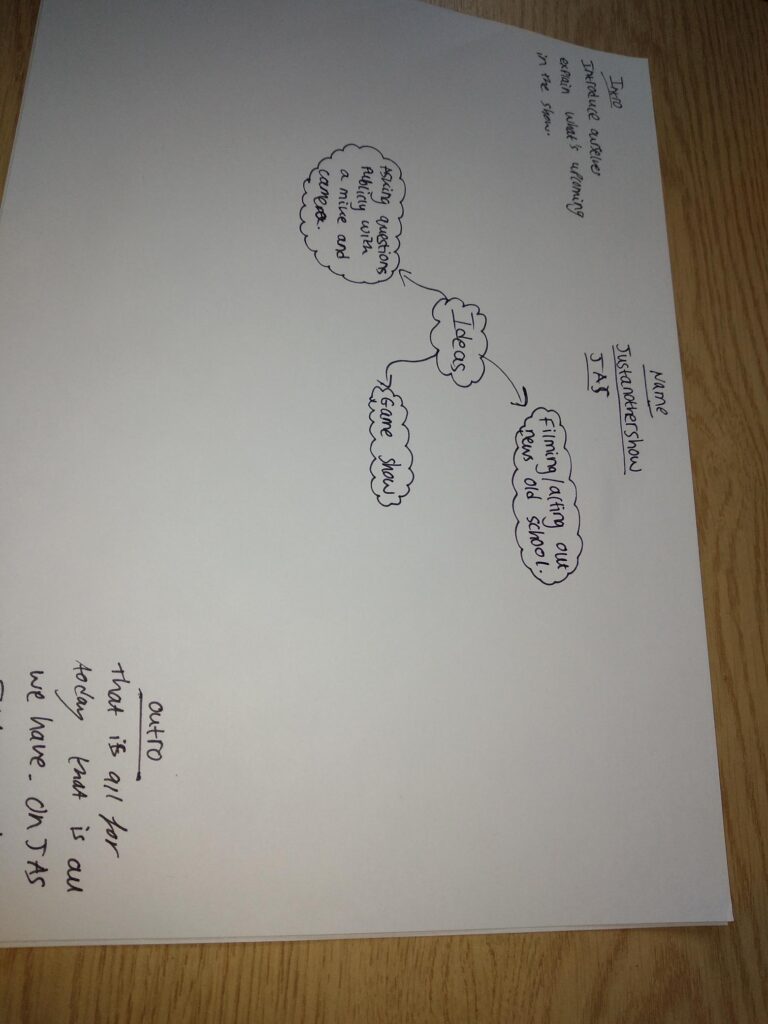 Intro
Introduce ourselves
explain what's upcoming
in the show.
Name
Justanothershow
JAS
Ideas
Filming/acting out
news old school.
Asking questions
Publicly with
a mike and
camera.
Game show
outro
that is all for
today that is all
we have. on JAS